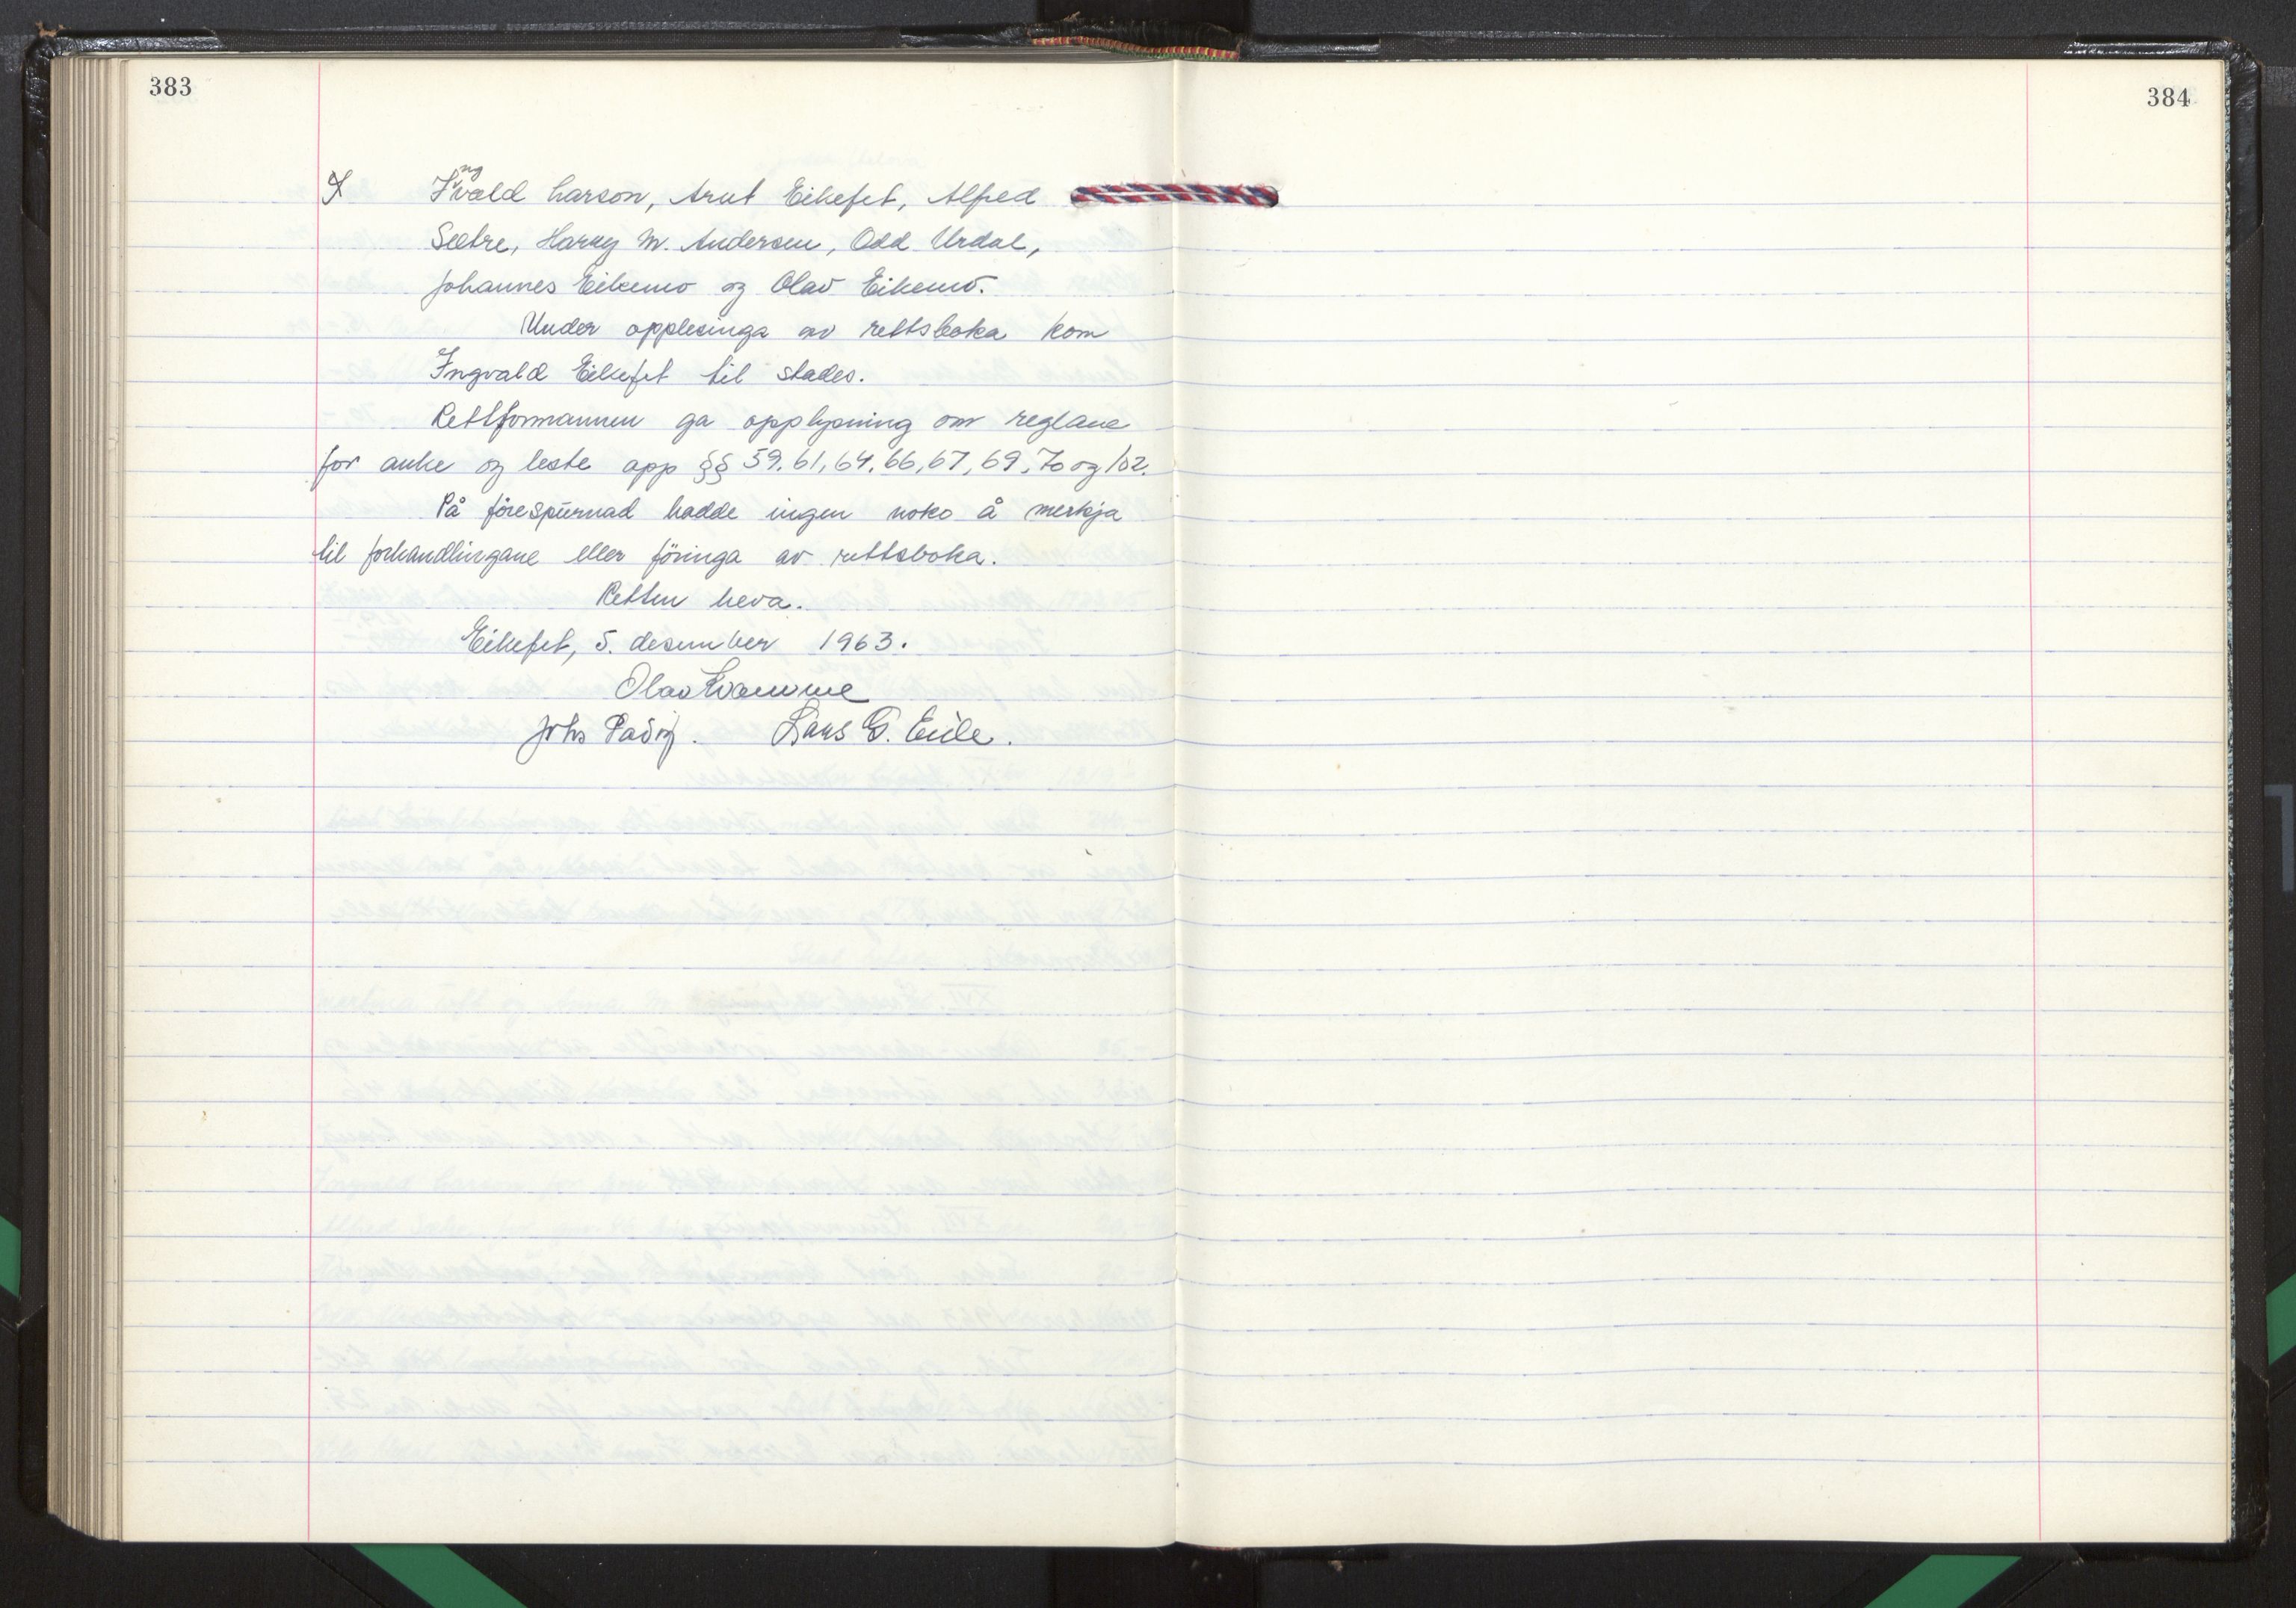 383
384
X Ingvald Larson, Arut Eikefet, Alfred
Sætre, Harry M. Andersen, Odd Urdal,
Johannes Eikemo og Olav Eikemo.
Under opplesinga av rettsboka kom
Ingvald Eikefet til stades.
Rettformannen ga opplysning om reglane
for anke og leste opp §§ 59, 61, 64, 66, 67, 69, 70 og 102.
På förespurnad hadde ingen noko å merkja
til forhandlingane eller föringa av rettsboka.
Retten heva.
Eikefet, 5. desember 1963.
Olav Kvamme
Johs Lars G. Eide.